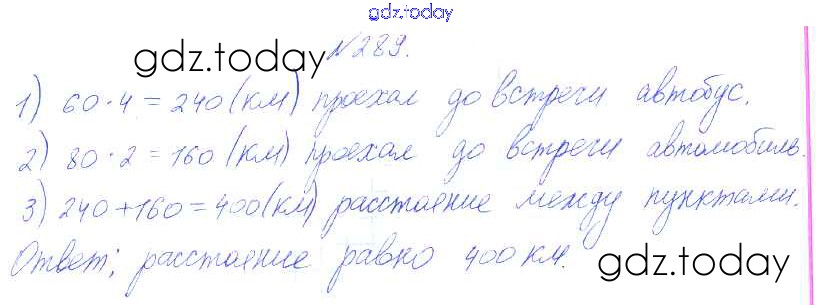 gdz.today
gdz.today №289.
1) 60·4=240(км) проехал до встречи автобус.
2) 80·2=160(км) проехал до встречи автомобиль.
3) 240+160=400(км) расстояние между пунктами.
Ответ; расстояние равно 400 км. gdz.today